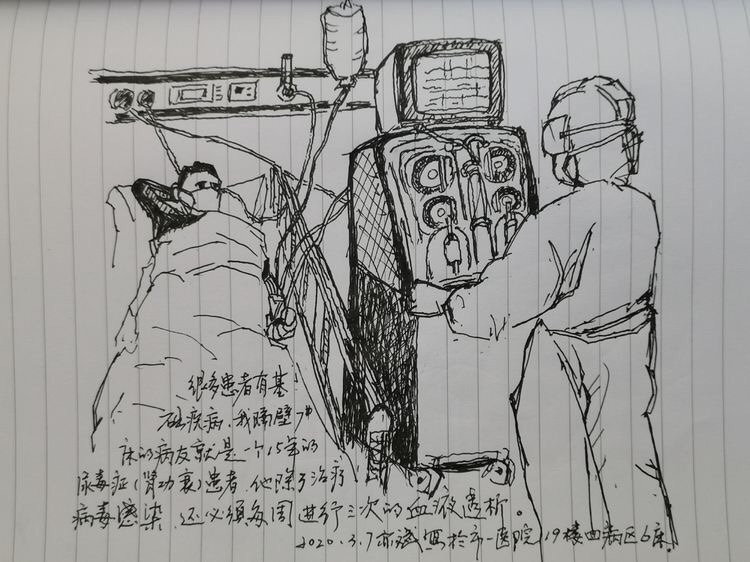 很多患者有基
础疾病，我隔壁7#
床的病友就是一个15年的
尿毒症（肾功衰）患者，他除了治疗
病毒感染，还必须每周进行三次的血液透析。
2020.3.7 亦诚写于市一医院19楼四病区6床